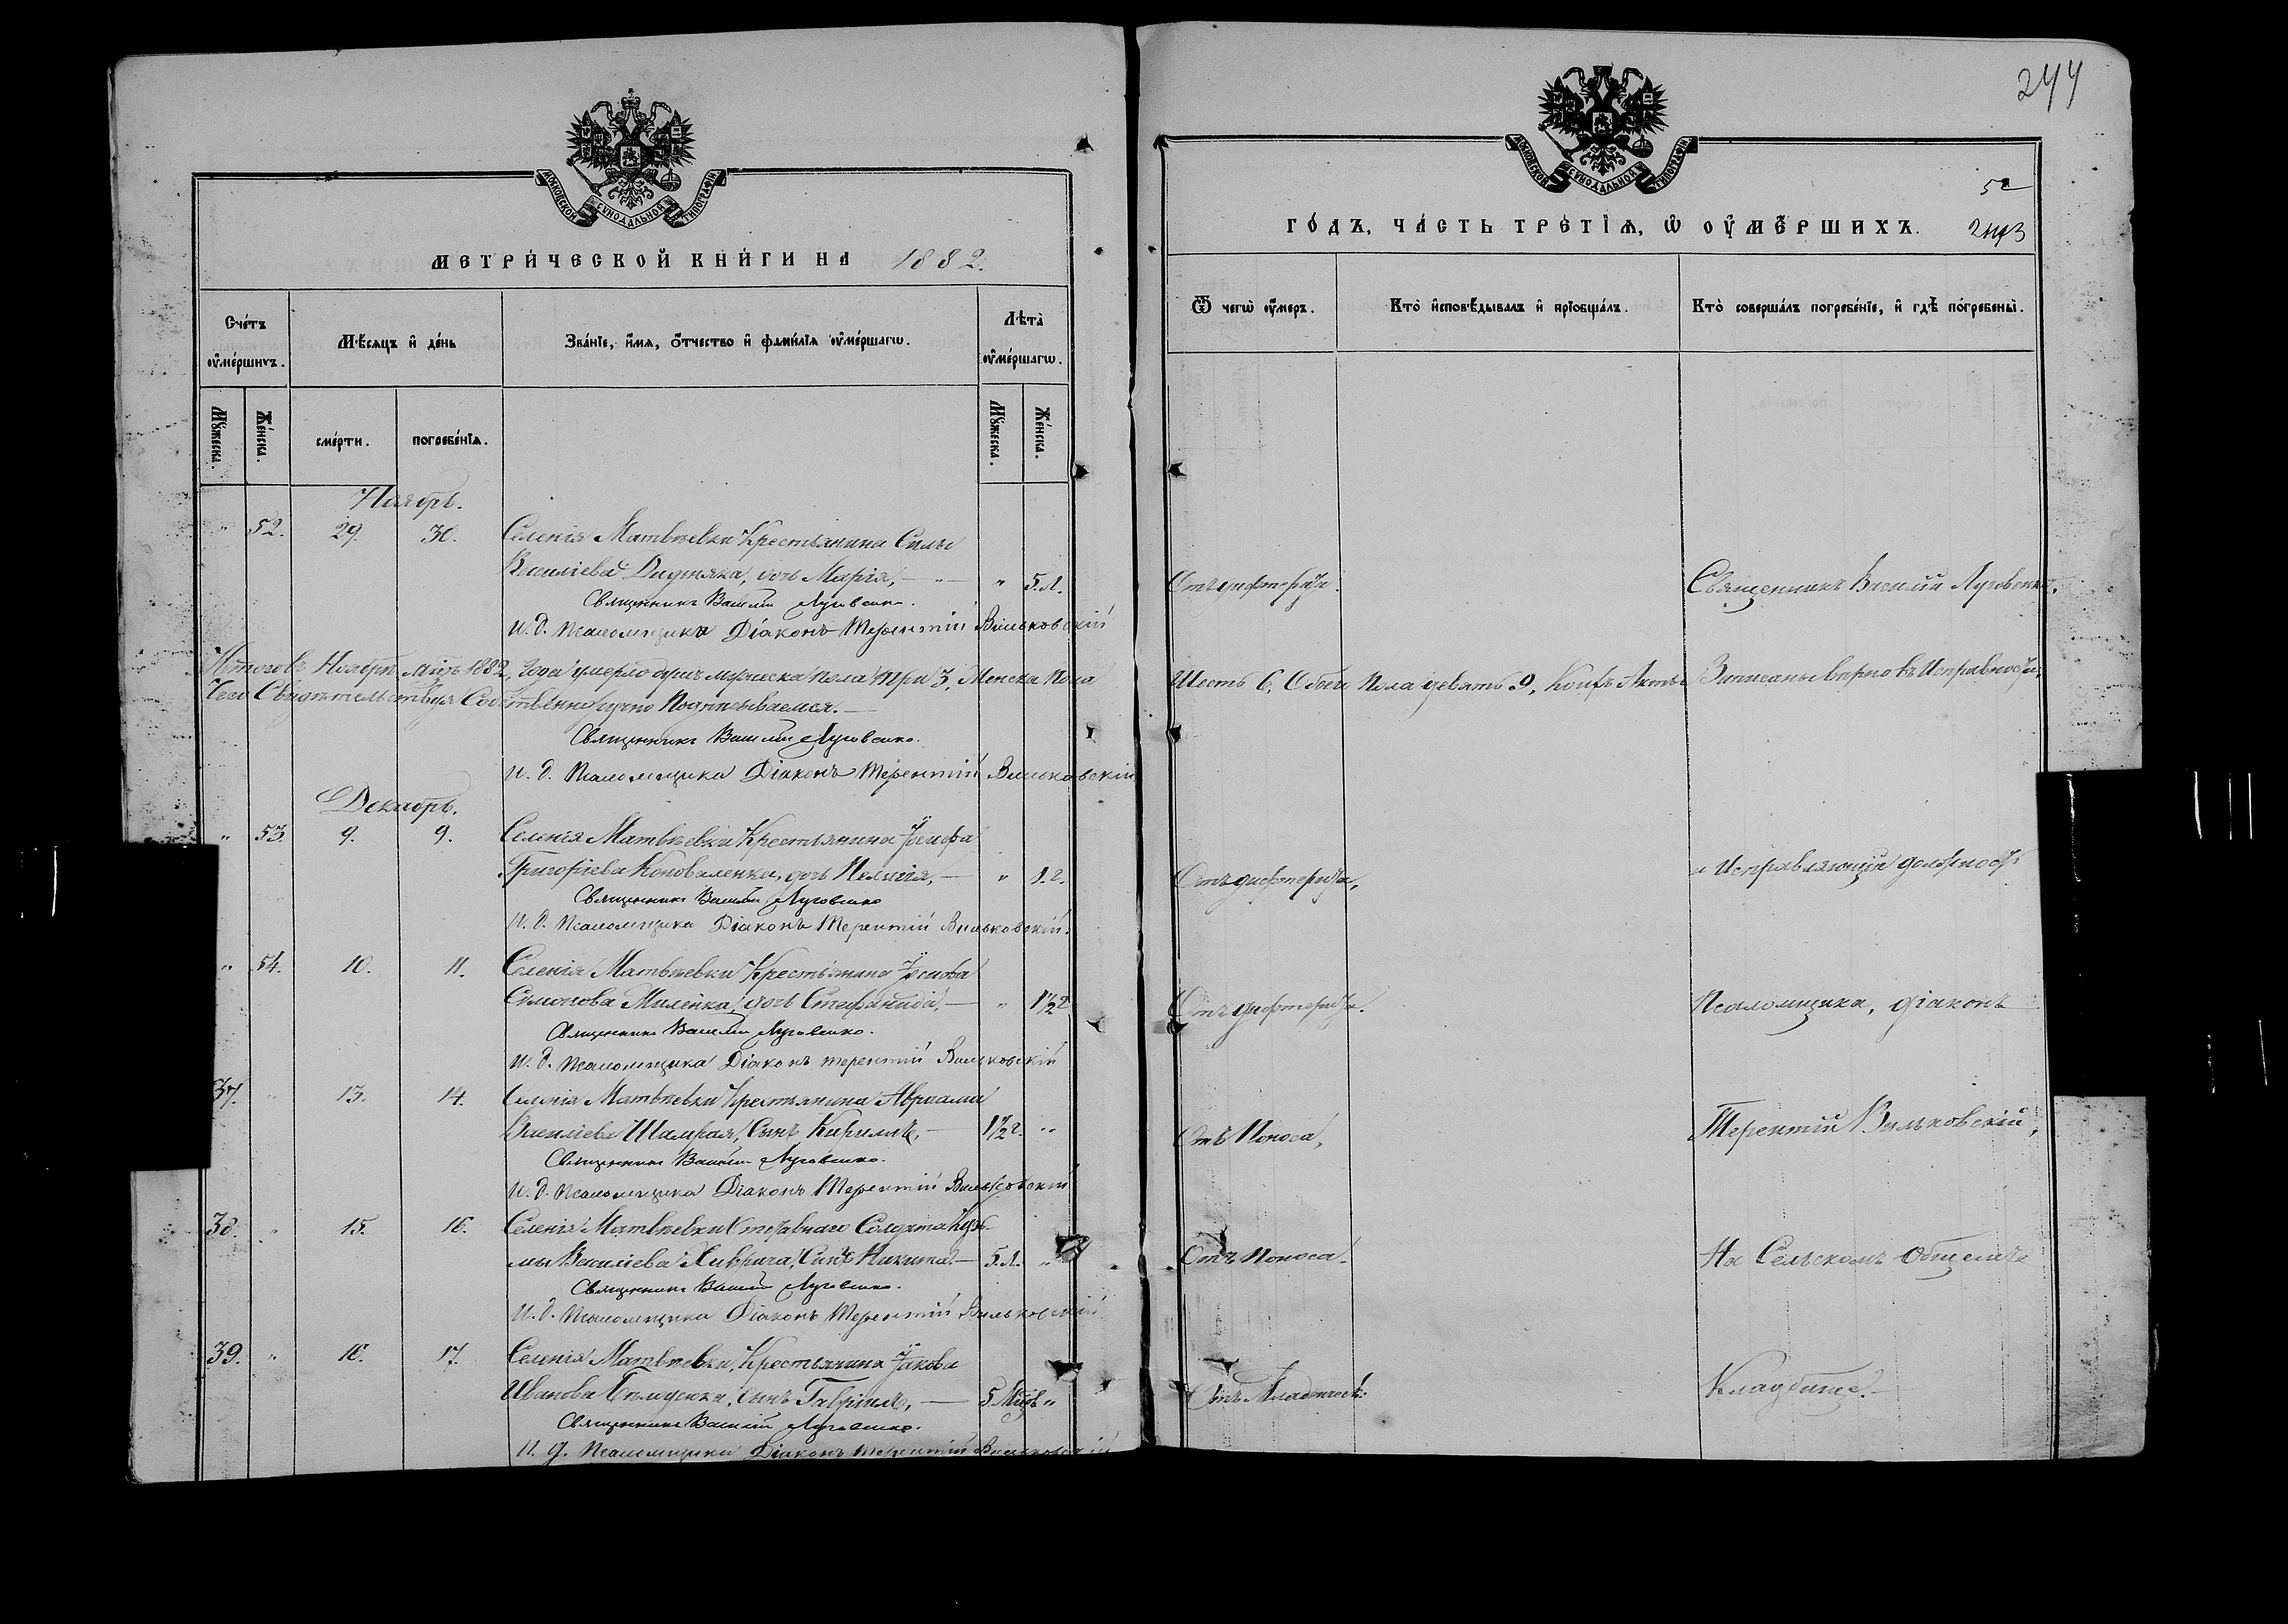 МОСКОВСКОЙ СѴНОДАЛЬНОЙ ТИПОГРАФІИ
МЕТРИ́ЧЕСКОЙ КНИ́ГИ НА 1882.
Сче́тъ ᲂу҆ме́ршихъ.
Мѣ́сяцъ и҆ де́нь
Зва́нїе, и҆́мѧ, ѻ҆́тчество и҆ фами́лїѧ ᲂу҆ме́ршагѡ.
Лѣта̀ ᲂу҆ме́ршагѡ.
Мꙋ́жеска.
Же́нска.
сме́рти.
погребе́нїѧ.
Мꙋ́жеска.
Же́нска.
Ноябрь.
" 52. 29. 30. Селенія Матвѣевки Крестьянина Силы
Василіева Дидняка, дочь Марія, — " 5.л.
Священникъ Василій Луговенко.
И. д. Псаломщика Діаконъ Терентій Вильковскій
Итого въ Ноябрѣ м-цѣ 1882 года умерло душъ мужеска пола три 3, Женска пола
Чемъ Свидѣтельствуя Собственноручно Подписываемся. —
Священникъ Василій Луговенко.
И. д. Псаломщика Діаконъ Терентій Вильковскій
Декабрь.
" 53. 9. 9. Селенія Матвѣевки Крестьянина Іосифа
Григоріева Коноваленка, дочь Пелагія, — " 1.г.
Священникъ Василій Луговенко
И. д. Псаломщика Діаконъ Терентій Вильковскій.
" 54. 10. 11. Селенія Матвѣевки Крестьянина Іосифа
Симонова Миленка, дочь Стефанида, — " 1½ г
Священникъ Василій Луговенко.
И. д. Псаломщика Діаконъ Терентій Вильковскій
37. " 13. 14. Селенія Матвѣевки Крестьянина Авраама
Василіева Шамрая, Сынъ Кирилъ, — 1½ г. "
Священникъ Василій Луговенко.
И. д. Псаломщика Діаконъ Терентій Вильковскій
38. " 15. 16. Селенія Матвѣевки Солдата Кузь-
мы Василіева Сынъ Никита. — 5.л. "
Священникъ Василій Луговенко.
И. д. Псаломщика Діаконъ Терентій Вильковскій
39. " 16. 17. Селенія Матвѣевки, Крестьянина Іакова
Иванова Сынъ Гавріилъ, — 5 "
Священникъ Василій Луговенко.
И. д. Псаломщика Діаконъ Терентій Вильковскій
244
МОСКОВСКОЙ СѴНОДАЛЬНОЙ ТИПОГРАФІИ
52
ГО́ДЪ, ЧА́СТЬ ТРЕ́ТІѦ, Ѡ҆ ОУ҆МЕ́РШИХЪ. 243
Ѿ чегѡ̀ ᲂу҆́меръ.
Кто̀ и҆сповѣ́дывалъ и҆ прїобща́лъ.
Кто̀ соверша́лъ погребе́нїе, и҆ гдѣ̀ погребены̀.
Отъ дифтерита. Священникъ Василій Луговенко,
Шесть 6, Обоего Пола девять 9, Акты Записаны вѣрно въ Исправности,
Отъ дифтерита, и Исправляющій должность
Отъ дифтерита. Псаломщика, діаконъ
Отъ Поноса, Терентій Вильковскій,
Отъ Поноса. На Сельскомъ Общемъ
Отъ Младенческ: Кладбище. —